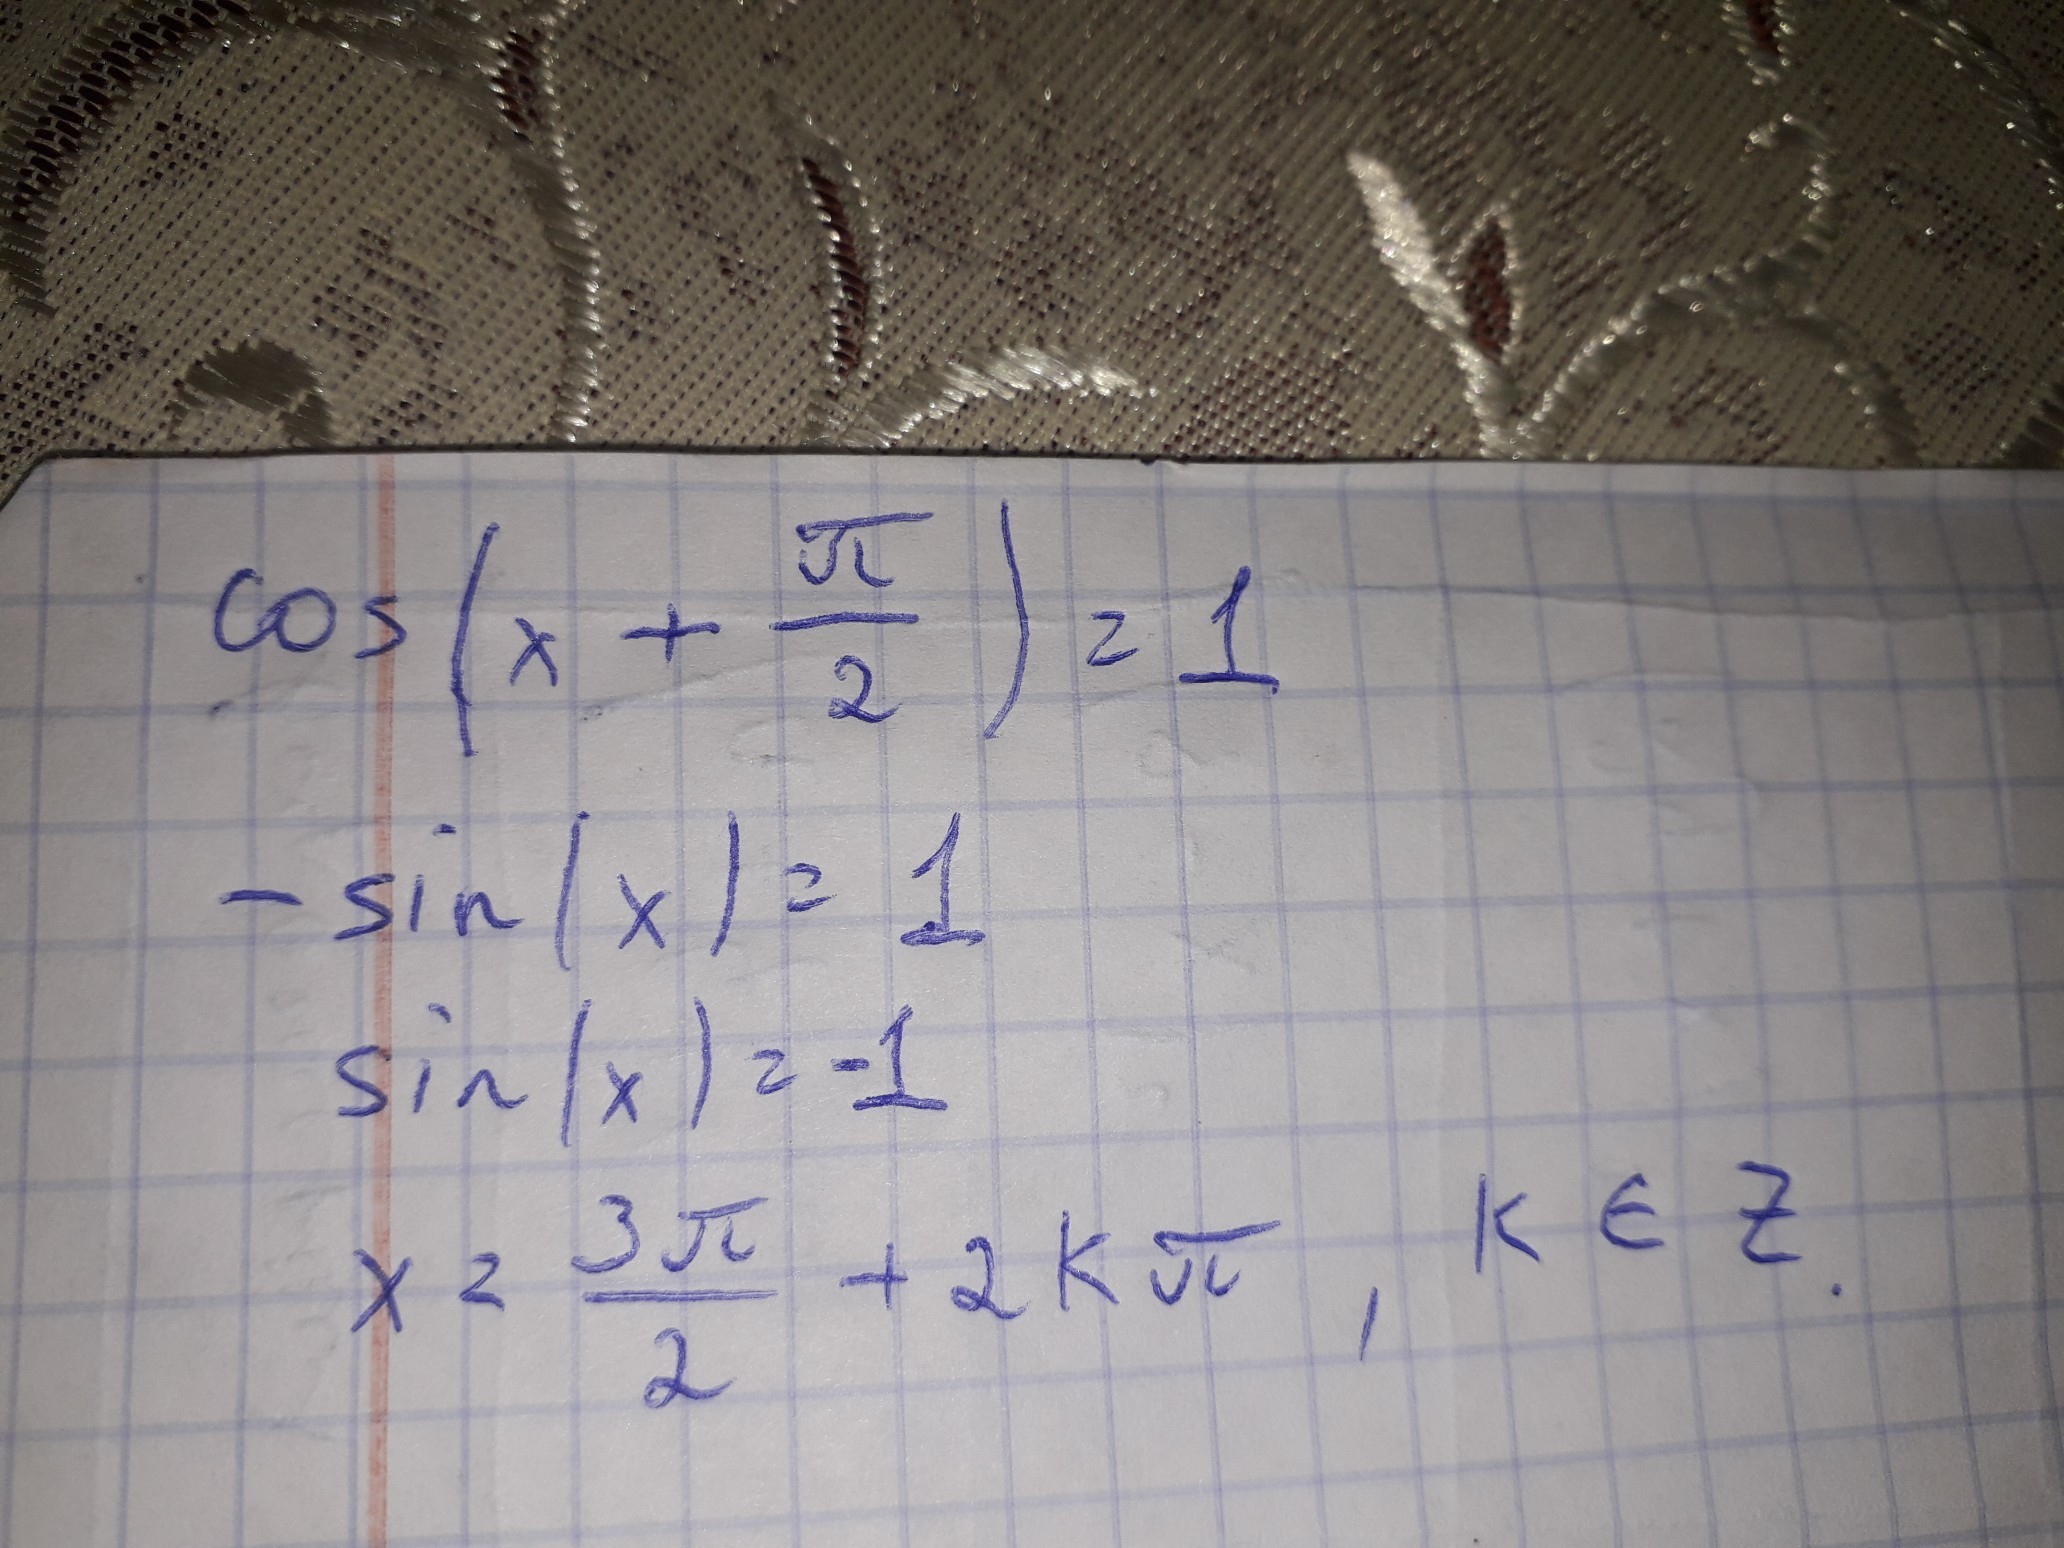 cos(x + π/2) = 1
-sin(x) = 1
sin(x) = -1
x = 3π/2 + 2kπ, k ∈ Z.